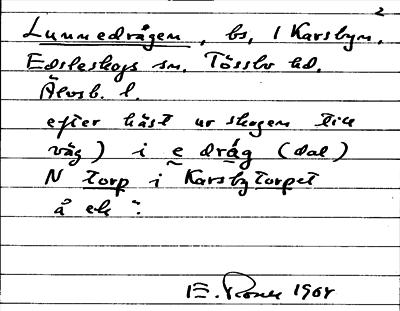 2
Lunnedrågen, bs, i Karsbyn,
Edsleskogs sn. Tössbo hd.
Älvsb. l.
efter häst ur skogen till
väg) i e dråg (dal)
N torp i Karsbytorpet
å
E. 1964